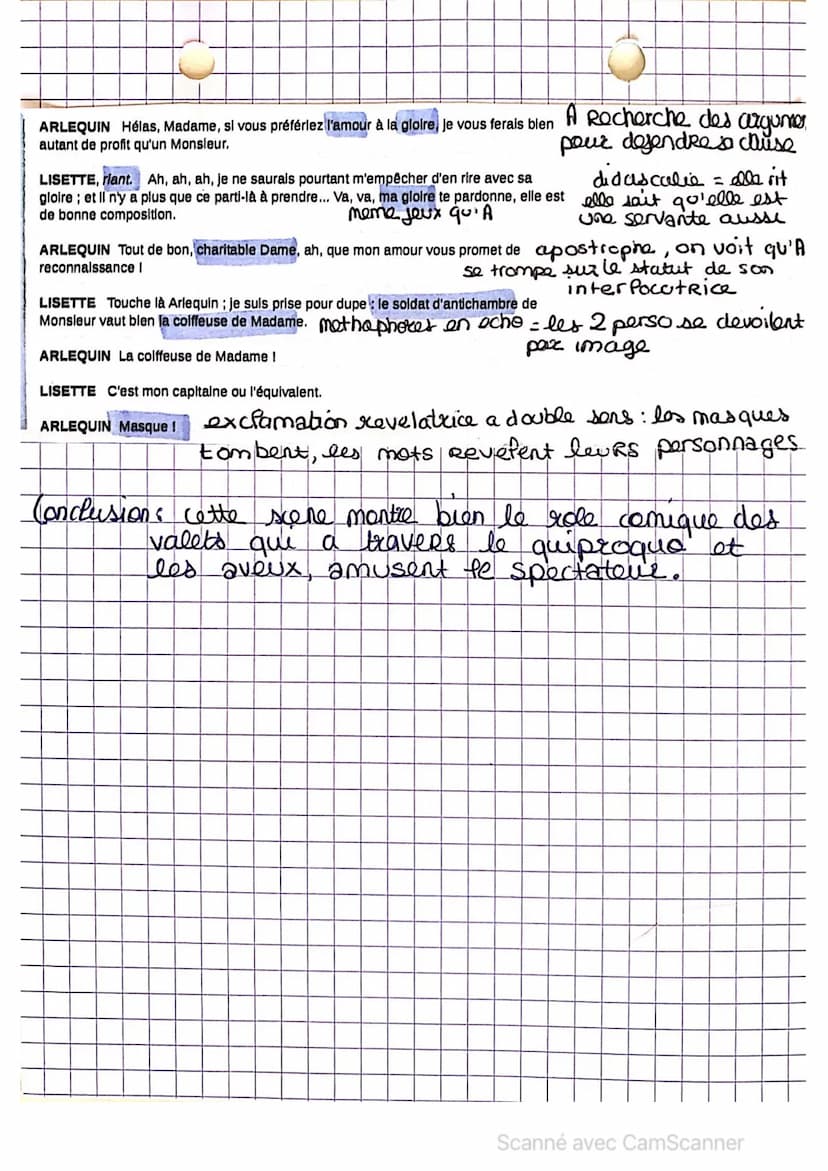 ARLEQUIN Hélas, Madame, si vous préfériez l'amour à la gloire, je vous ferais bien
autant de profit qu'un Monsieur.
A Recherche des argumen
pour defendre sa cause
LISETTE, riant. Ah, ah, ah, je ne saurais pourtant m'empêcher d'en rire avec sa
gloire ; et il n'y a plus que ce parti-là à prendre... Va, va, ma gloire te pardonne, elle est
de bonne composition.
meme jeux qu'A
didascalie = elle rit
elle sait qu'elle est
une servante aussi
ARLEQUIN Tout de bon, charitable Dame, ah, que mon amour vous promet de
reconnaissance !
apostrophe, on voit qu'A
se trompe sur le statut de son
interlocutrice
LISETTE Touche là Arlequin ; je suis prise pour dupe : le soldat d'antichambre de
Monsieur vaut bien la coiffeuse de Madame.
methaphores en echo = les 2 perso se devoilent
par image
ARLEQUIN La coiffeuse de Madame !
LISETTE C'est mon capitaine ou l'équivalent.
ARLEQUIN Masque !
exclamation revelatrice a double sens : les masques
tombent, les mots revelent leurs personnages
Conclusion : cette scene montre bien le role comique des
valets qui a travers le quiproquo et
les aveux, amusent le spectateur.
Scanné avec CamScanner